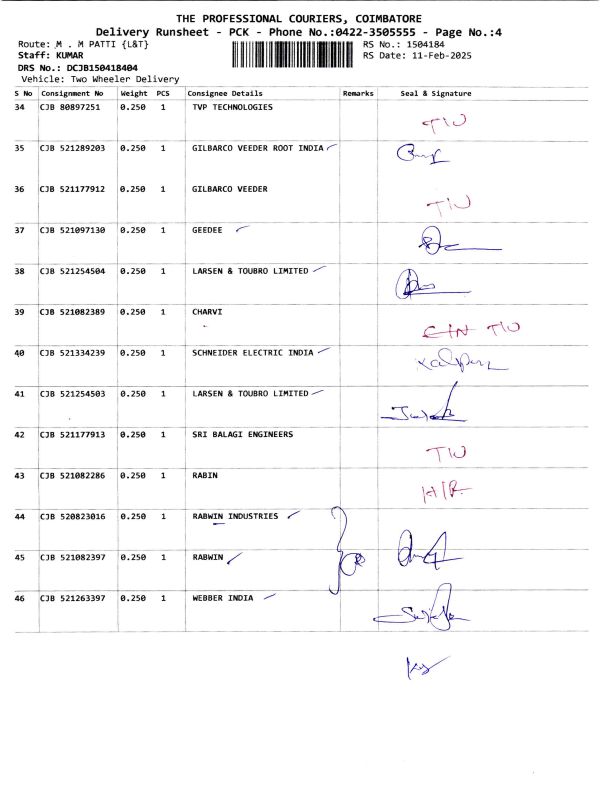 THE PROFESSIONAL COURIERS, COIMBATORE
Delivery Runsheet - PCK - Phone No.:0422-3505555 - Page No.:4
Route: M . M PATTI {L&T} RS No.: 1504184
Staff: KUMAR RS Date: 11-Feb-2025
DRS No.: DCJB150418404
Vehicle: Two Wheeler Delivery
S No Consignment No Weight PCS Consignee Details Remarks Seal & Signature
34 CJB 80897251 0.250 1 TVP TECHNOLOGIES
35 CJB 521289203 0.250 1 GILBARCO VEEDER ROOT INDIA
36 CJB 521177912 0.250 1 GILBARCO VEEDER
37 CJB 521097130 0.250 1 GEEDEE
38 CJB 521254504 0.250 1 LARSEN & TOUBRO LIMITED
39 CJB 521082389 0.250 1 CHARVI
40 CJB 521334239 0.250 1 SCHNEIDER ELECTRIC INDIA
41 CJB 521254503 0.250 1 LARSEN & TOUBRO LIMITED
42 CJB 521177913 0.250 1 SRI BALAGI ENGINEERS
43 CJB 521082286 0.250 1 RABIN
44 CJB 520823016 0.250 1 RABWIN INDUSTRIES
45 CJB 521082397 0.250 1 RABWIN
46 CJB 521263397 0.250 1 WEBBER INDIA